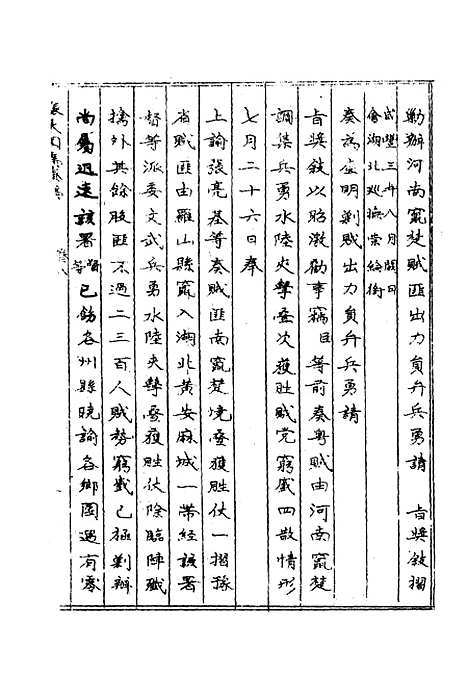 勦辦河南竄楚賊匪出力員弁兵勇請 旨獎敘摺
咸豐三年八月 日
會湖北巡撫崇綸銜
奏為查明剿賊出力員弁兵勇請
旨獎敘以昭激勸事竊臣等前奏粵賊由河南竄楚
調集兵勇水陸夾擊疊次獲勝賊党窮蹙四散情形
七月二十六日奉
上諭張亮基等奏賊匪南竄楚境疊獲勝仗一摺豫
省賊匪由羅山縣竄入湖北黃安麻城一帶經該署
督等派委文武兵勇水陸夾擊疊獲勝仗除臨陣殲
擒外其餘股匪不過二三百人賊勢窮蹙已極剿辦
尚屬迅速該署督等已飭各州縣曉諭各鄉團遇有零
張大司馬奏稿
卷八